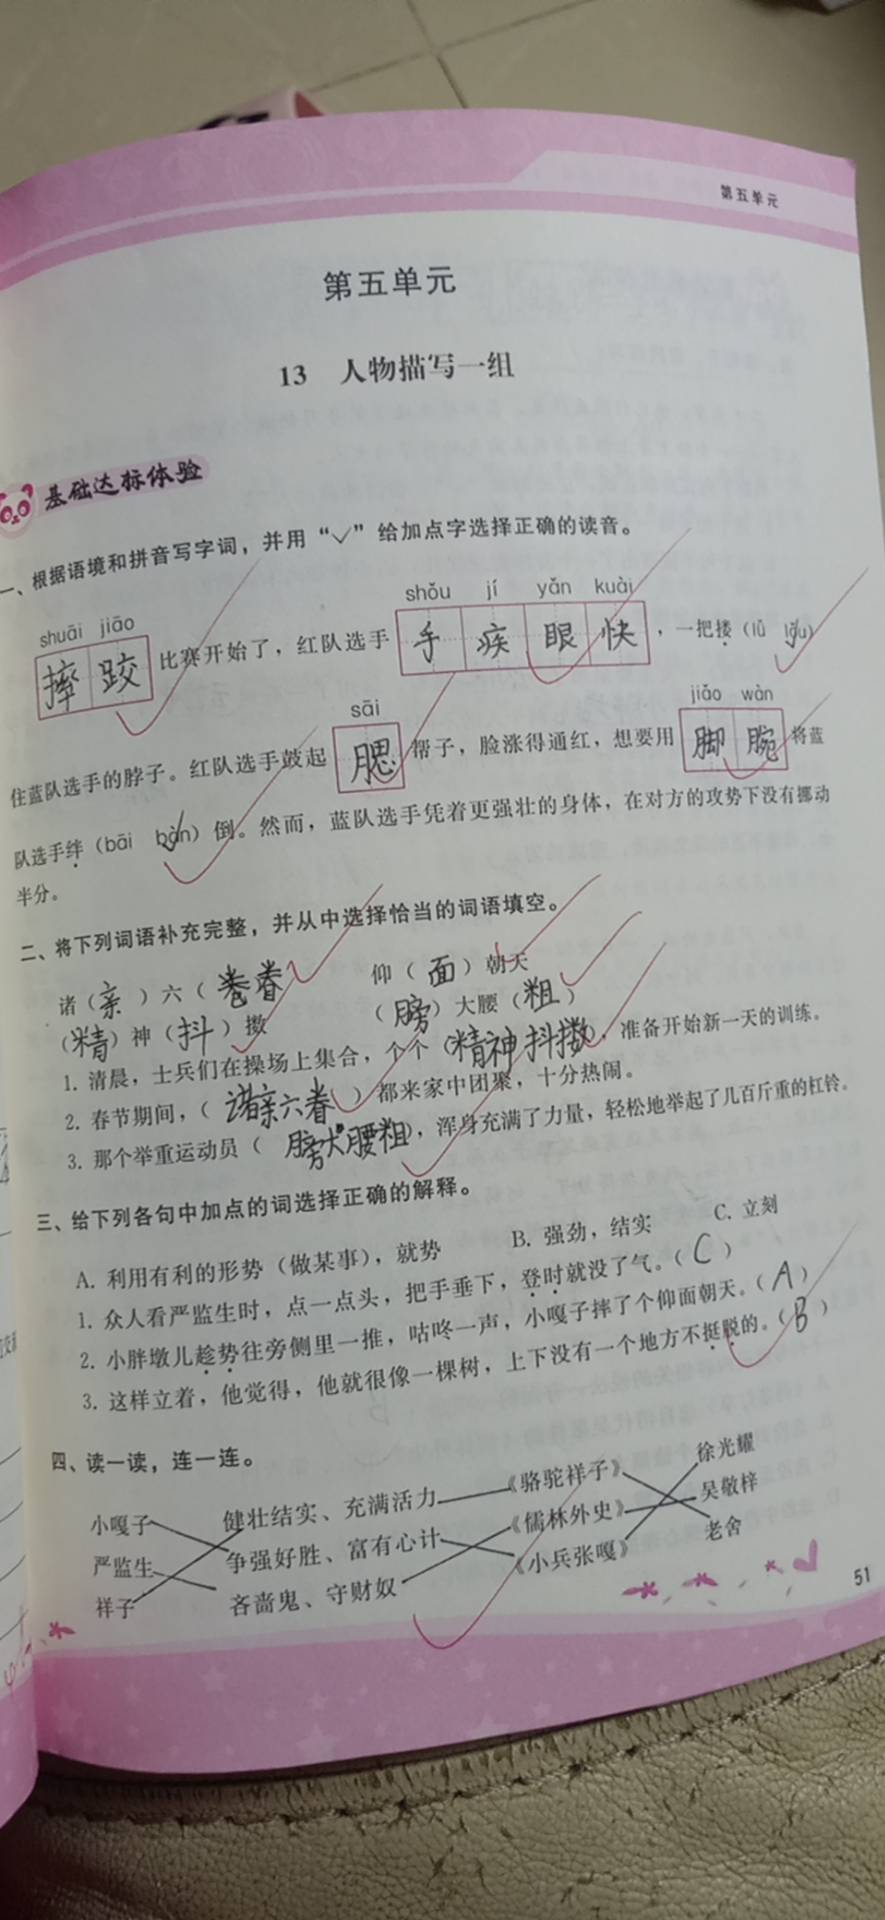 第五单元
第五单元
13 人物描写一组
基础达标体验
一、根据语境和拼音写字词，并用“✓”给加点字选择正确的读音。
shuāi jiāo shǒu jí yǎn kuài
摔跤比赛开始了，红队选手手疾眼快，一把搂（lǔ lǒu）
sāi jiǎo wàn
住蓝队选手的脖子。红队选手鼓起腮帮子，脸涨得通红，想要用脚腕将蓝
队选手绊（bāi bàn）倒。然而，蓝队选手凭着更强壮的身体，在对方的攻势下没有挪动
半分。
二、将下列词语补充完整，并从中选择恰当的词语填空。
诸（亲）六（眷） 仰（面）朝天
（精）神（抖）擞 （膀）大腰（粗）
1. 清晨，士兵们在操场上集合，个个（精神抖擞），准备开始新一天的训练。
2. 春节期间，（诸亲六眷）都来家中团聚，十分热闹。
3. 那个举重运动员（膀大腰粗），浑身充满了力量，轻松地举起了几百斤重的杠铃。
三、给下列各句中加点的词选择正确的解释。
A. 利用有利的形势（做某事），就势 B. 强劲，结实 C. 立刻
1. 众人看严监生时，点一点头，把手垂下，登时就没了气。（C）
2. 小胖墩儿趁势往旁侧里一推，咕咚一声，小嘎子摔了个仰面朝天。（A）
3. 这样立着，他觉得，他就很像一棵树，上下没有一个地方不挺脱的。（B）
四、读一读，连一连。
小嘎子 健壮结实、充满活力 《骆驼祥子》 徐光耀
严监生 争强好胜、富有心计 《儒林外史》 吴敬梓
祥子 吝啬鬼、守财奴 《小兵张嘎》 老舍
51